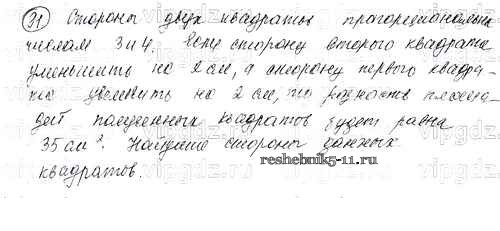 31) Стороны двух квадратов пропорциональны
числам 3 и 4. Если сторону второго квадрата
уменьшить на 2 см, а сторону первого квадра-
та увеличить на 2 см, то разность площа-
дей полученных квадратов будет равна
35 см². Найдите стороны данных
reshebnik5-11.ru
квадратов.